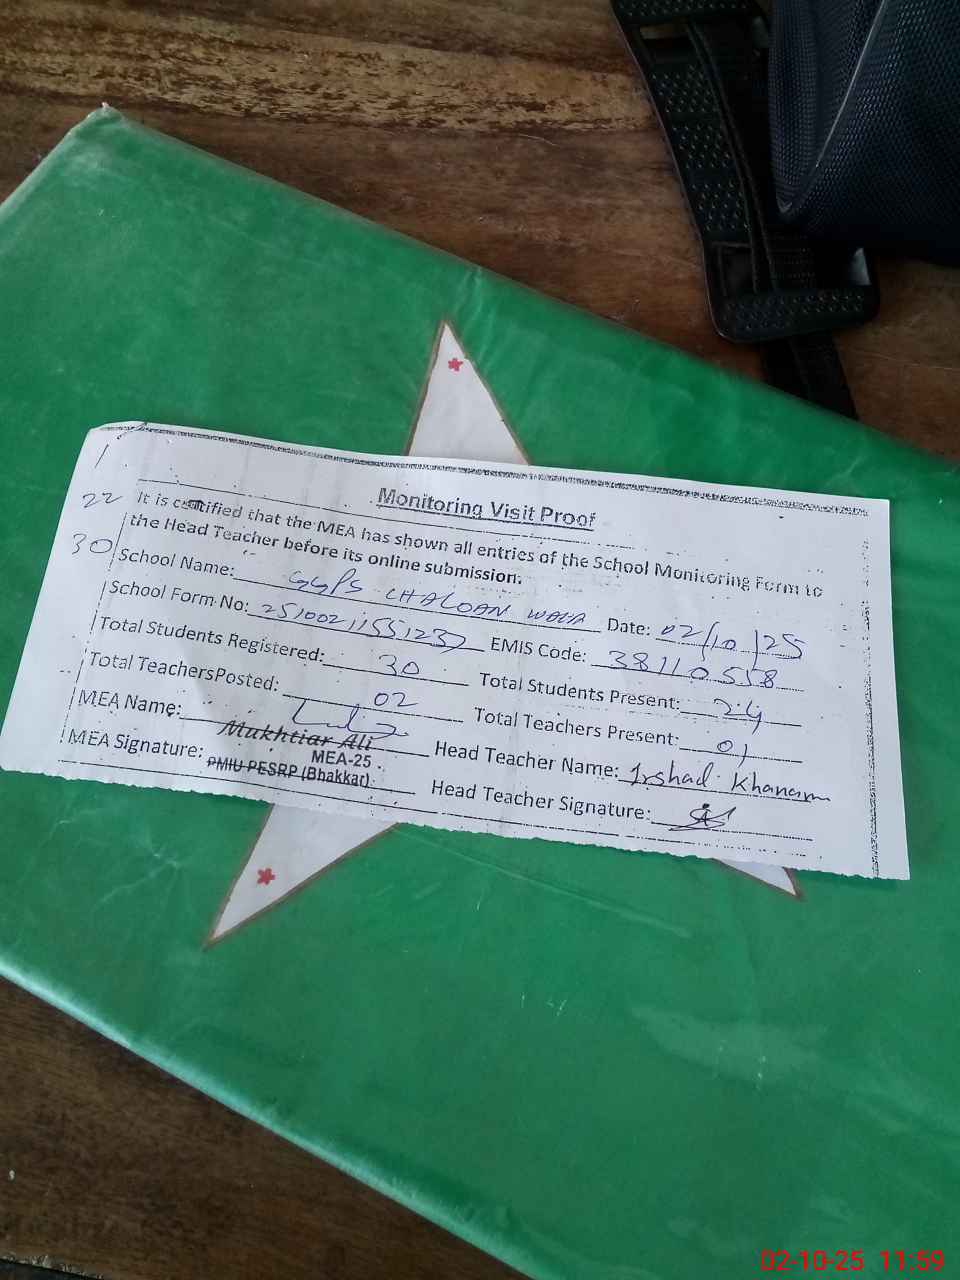 1
22
30
Monitoring Visit Proof
It is certified that the MEA has shown all entries of the School Monitoring Form to
the Head Teacher before its online submission.
School Name: GGPS CHALOAN WALA Date: 02/10/25
School Form No: 251002115512 EMIS Code: 38110558
Total Students Registered: 30 Total Students Present: 24
Total TeachersPosted: 02 Total Teachers Present: 01
MEA Name: Mukhtiar Ali Head Teacher Name: Irshad Khanam
MEA-25
MEA Signature: PMIU PESRP (Bhakkar) Head Teacher Signature:
02-10-25 11:59